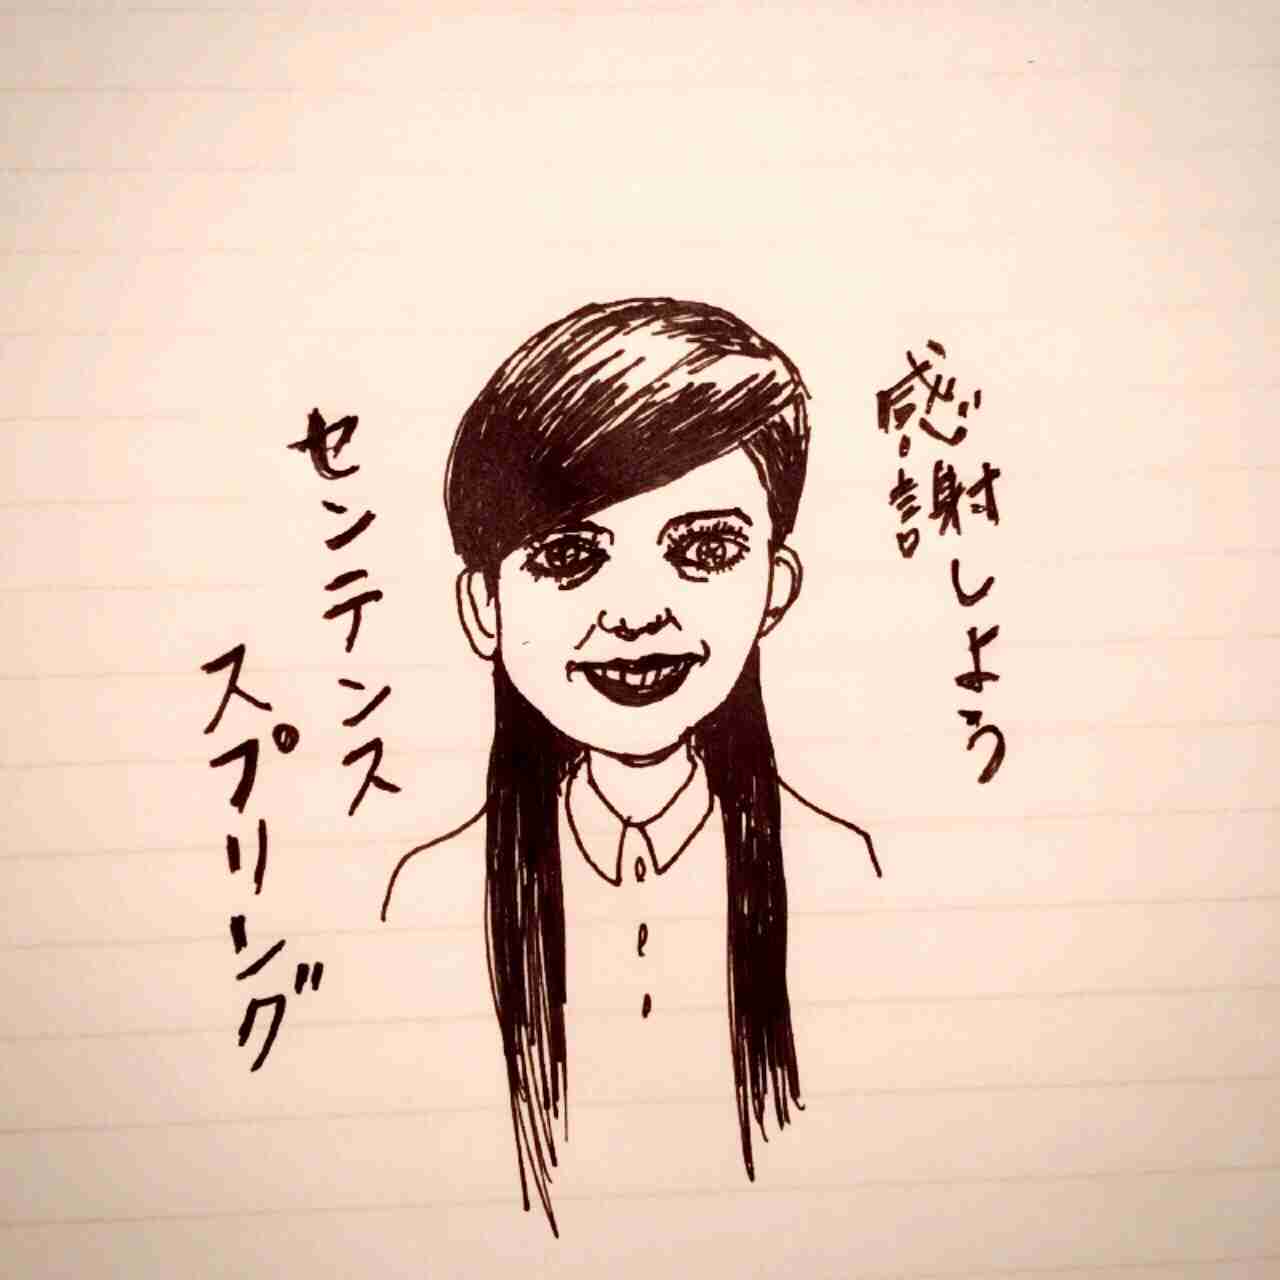 感謝しよう
センテンス
スプリング